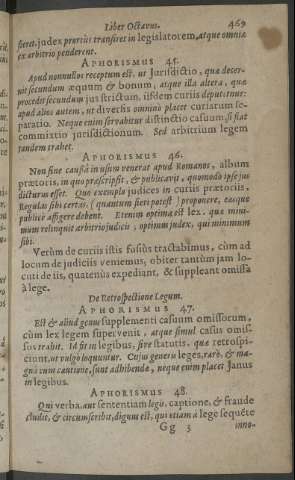 Liber Octavus. 469
fieret, judex prorsùs transiret in legislatorem, atque omnia
ex arbitrio penderent.
APHORISMUS 45.
Apud nonnullos receptum est, ut Jurisdictio, quæ decer-
nit secundum æquum & bonum, atque illa altera, quæ
procedit secundum jus strictum, iisdem curiis deputentur:
apud alios autem, ut diversis: omninò placet curiarum se-
paratio. Neque enim servabitur distinctio casuum, si fiat
commixtio jurisdictionum: Sed arbitrium legem
tandem trahet.
APHORISMUS 46.
Non sine causâ in usum venerat apud Romanos, album
prætoris, in quo præscripsit, & publicavit, quomodo ipse jus
dicturus esset. Quo exemplo judices in curiis prætoriis,
Regulas sibi certas, (quantum fieri potest) proponere, easque
publicè affigere debent. Etenim optima est lex, quæ mini-
mum relinquit arbitrio judicis, optimus judex, qui minimum
sibi.
Verùm de curiis istis fusiùs tractabimus, cùm ad
locum de judiciis veniemus, obiter tantùm jam lo-
cuti de iis, quatenùs expediant, & suppleant omissa
à lege.
De Retrospectione Legum.
APHORISMUS 47.
Est & aliud genus supplementi casuum omissorum,
cùm lex legem supervenit, atque simul casus omis-
sos trahit. Id fit in legibus, sive statutis, quæ retrospi-
ciunt, ut vulgò loquuntur. Cujus generis leges, rarò, & ma-
gnâ cum cautione, sunt adhibendæ, neque enim placet Janus
in legibus.
APHORISMUS 48.
Qui verba, aut sententiam legis, captione, & fraude
eludit, & circumscribit, dignus est, qui etiam à lege sequẽte
Gg 3 inno-